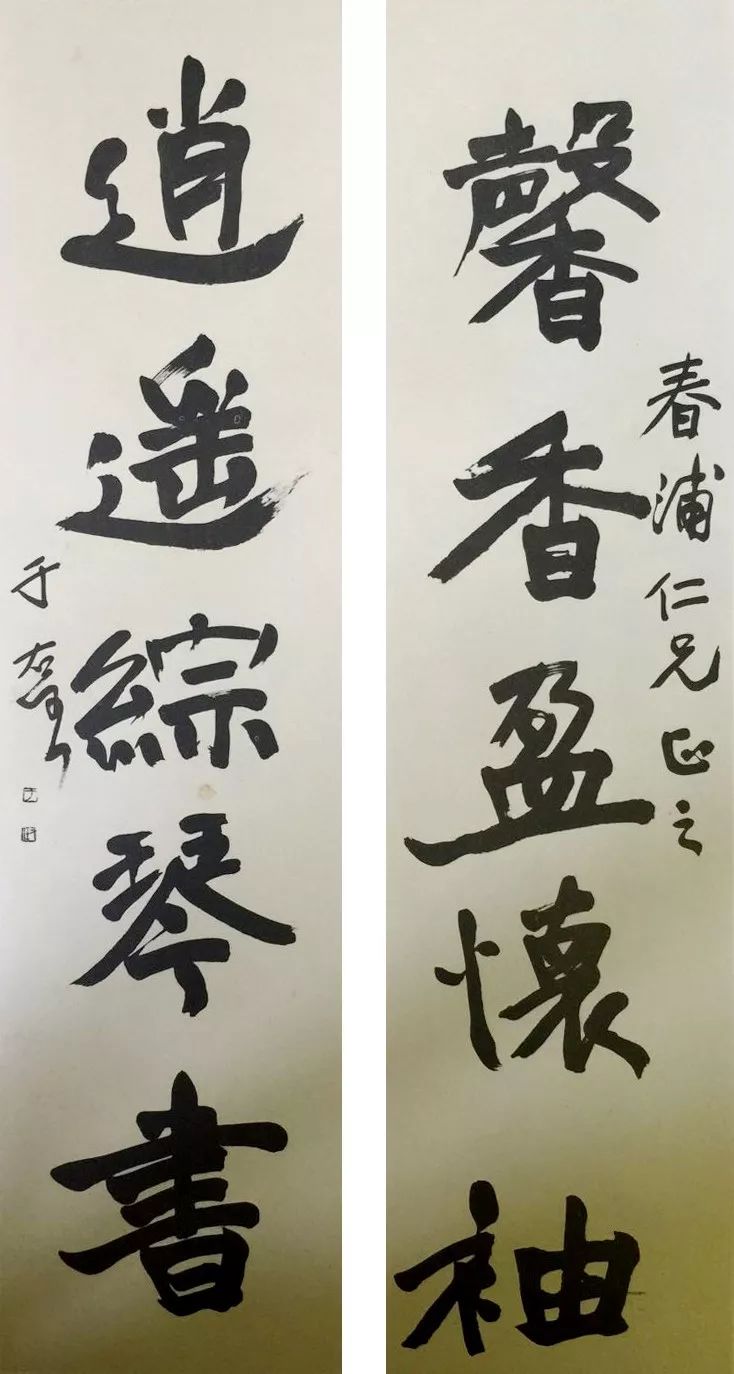 春浦仁兄正之
馨香盈懷袖
逍遥綜琴書
于右任